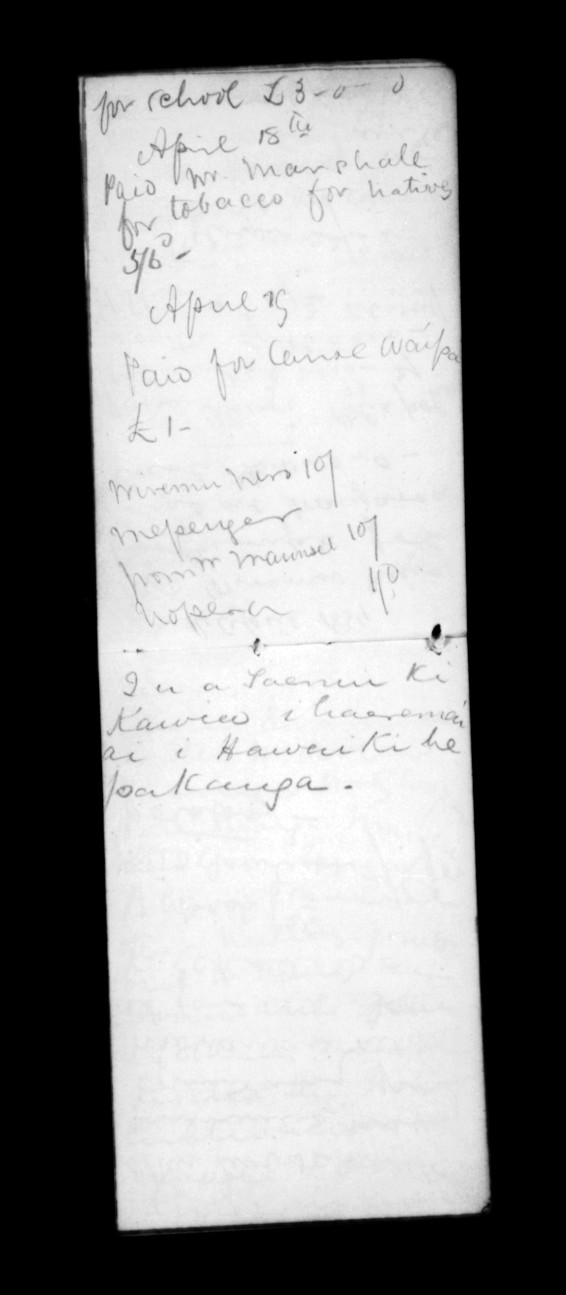 for school £3-0-0
April 18th
Paid Mr. Marshall
for tobacco for natives
5/6 -
April 19
Paid for Canoe Waipa
£1-
Wiremu 10/
Messenger
from Mr Maunsell 10/
Hopera
I u a Taenui ki
Kawiea i haeremai
ai i Hawaiki he
pakanga.